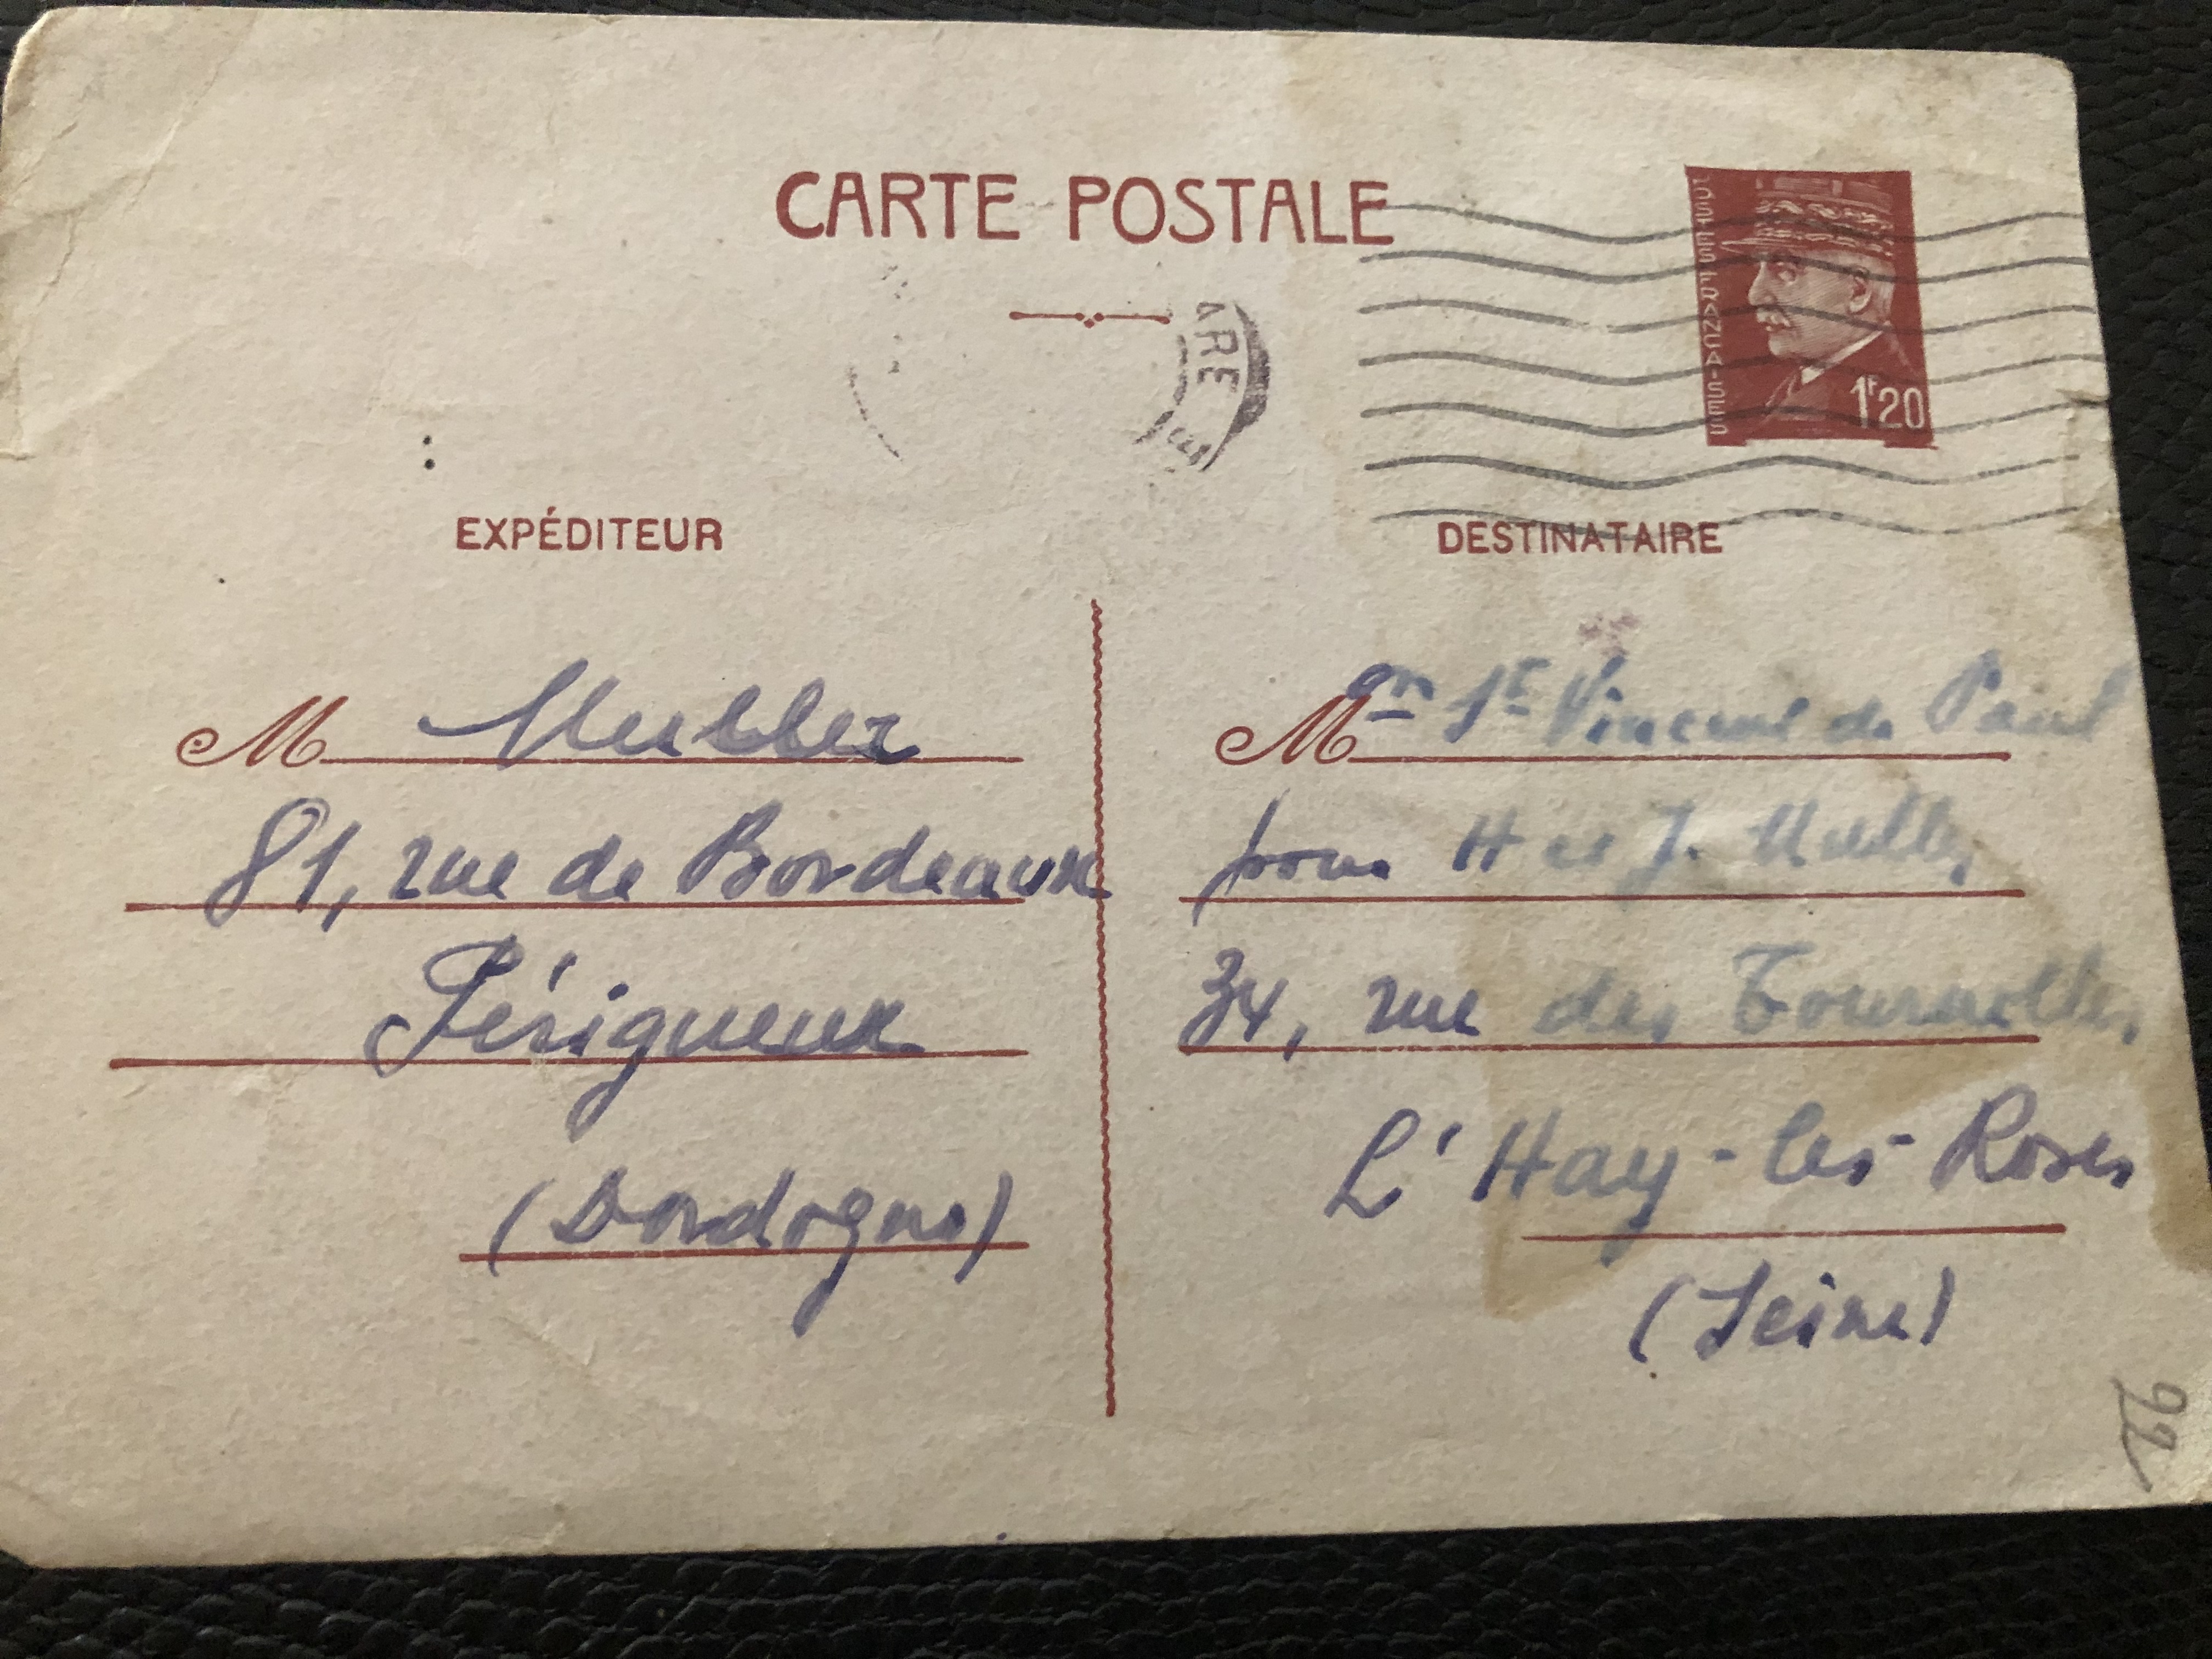 CARTE POSTALE
POSTES FRANÇAISES
1F20
ARE
EXPÉDITEUR
M Muller
81, rue de Bordeaux
Périgueux
(Dordogne)
DESTINATAIRE
Mon St Vincent de Paul
pour H et J. Muller
34, rue des Tournelles
L'Hay-les-Roses
(Seine)